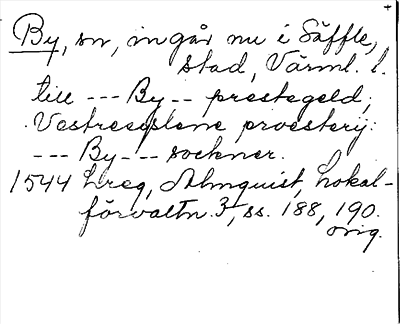 By, sn, ingår nu i Säffle,
stad, Värml. l.
till --- By -- prestegeld;
Vestresyslene proestery:
--- By --- sockner.
1544 Lreg, Almquist, Lokal-
förvaltn. 3, ss. 188, 190.
orig.